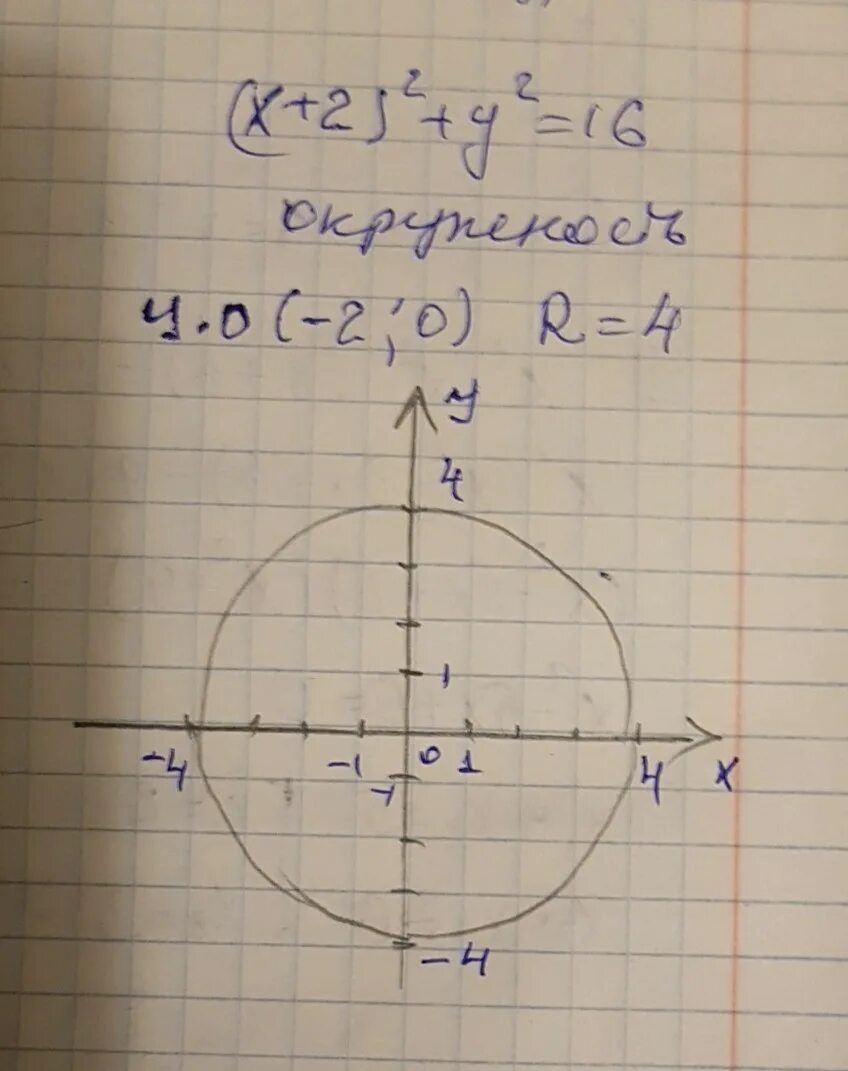 (x+2)²+y²=16
окружность
ц.о (-2;0) R=4
y
4
1
-4 -1 0 1 4 x
-1
-4